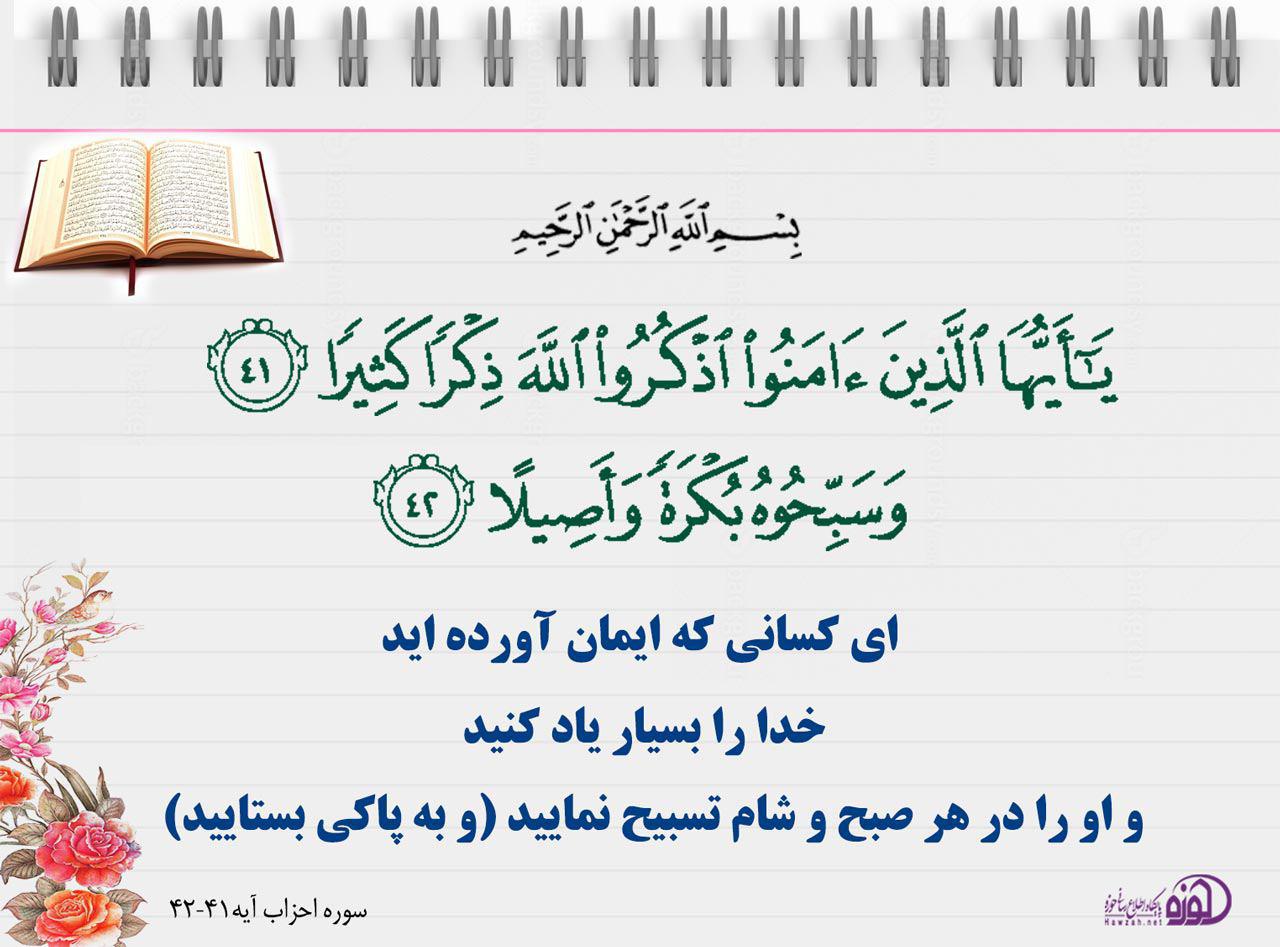 بِسْمِ ٱللَّهِ ٱلرَّحْمَٰنِ ٱلرَّحِيمِ
يَـٰٓأَيُّهَا ٱلَّذِينَ ءَامَنُوا۟ ٱذْكُرُوا۟ ٱللَّهَ ذِكْرًا كَثِيرًا ٤١
وَسَبِّحُوهُ بُكْرَةً وَأَصِيلًا ٤٢
ای کسانی که ایمان آورده اید
خدا را بسیار یاد کنید
و او را در هر صبح و شام تسبیح نمایید (و به پاکی بستایید)
سوره احزاب آیه۴۱-۴۲
حوزه پایگاه اطلاع رسانی حوزه
Hawzah.net